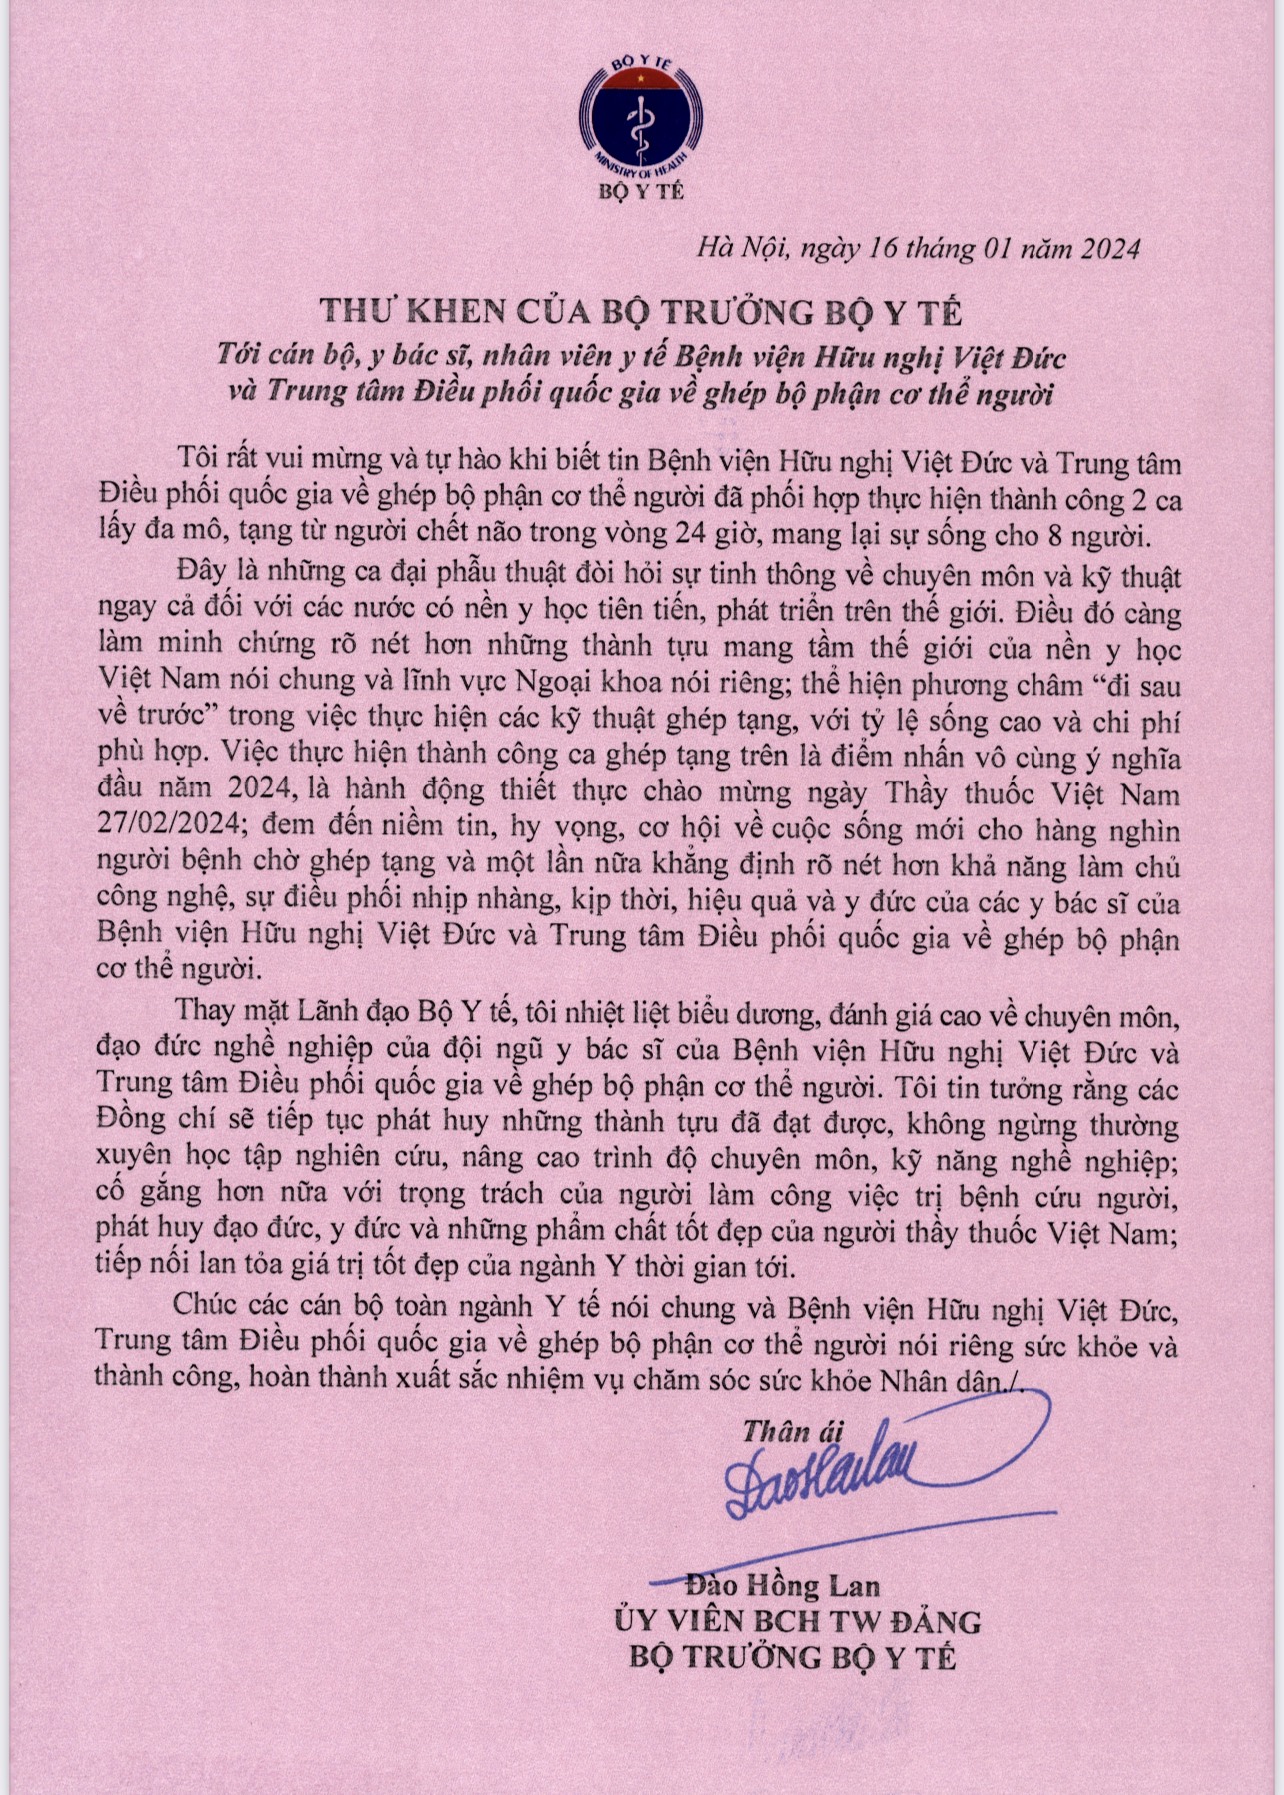 BỘ Y TẾ
MINISTRY OF HEALTH
BỘ Y TẾ
Hà Nội, ngày 16 tháng 01 năm 2024
THƯ KHEN CỦA BỘ TRƯỞNG BỘ Y TẾ
Tới cán bộ, y bác sĩ, nhân viên y tế Bệnh viện Hữu nghị Việt Đức
và Trung tâm Điều phối quốc gia về ghép bộ phận cơ thể người
Tôi rất vui mừng và tự hào khi biết tin Bệnh viện Hữu nghị Việt Đức và Trung tâm
Điều phối quốc gia về ghép bộ phận cơ thể người đã phối hợp thực hiện thành công 2 ca
lấy đa mô, tạng từ người chết não trong vòng 24 giờ, mang lại sự sống cho 8 người.
Đây là những ca đại phẫu thuật đòi hỏi sự tinh thông về chuyên môn và kỹ thuật
ngay cả đối với các nước có nền y học tiên tiến, phát triển trên thế giới. Điều đó càng
làm minh chứng rõ nét hơn những thành tựu mang tầm thế giới của nền y học
Việt Nam nói chung và lĩnh vực Ngoại khoa nói riêng; thể hiện phương châm “đi sau
về trước” trong việc thực hiện các kỹ thuật ghép tạng, với tỷ lệ sống cao và chi phí
phù hợp. Việc thực hiện thành công ca ghép tạng trên là điểm nhấn vô cùng ý nghĩa
đầu năm 2024, là hành động thiết thực chào mừng ngày Thầy thuốc Việt Nam
27/02/2024; đem đến niềm tin, hy vọng, cơ hội về cuộc sống mới cho hàng nghìn
người bệnh chờ ghép tạng và một lần nữa khẳng định rõ nét hơn khả năng làm chủ
công nghệ, sự điều phối nhịp nhàng, kịp thời, hiệu quả và y đức của các y bác sĩ của
Bệnh viện Hữu nghị Việt Đức và Trung tâm Điều phối quốc gia về ghép bộ phận
cơ thể người.
Thay mặt Lãnh đạo Bộ Y tế, tôi nhiệt liệt biểu dương, đánh giá cao về chuyên môn,
đạo đức nghề nghiệp của đội ngũ y bác sĩ của Bệnh viện Hữu nghị Việt Đức và
Trung tâm Điều phối quốc gia về ghép bộ phận cơ thể người. Tôi tin tưởng rằng các
Đồng chí sẽ tiếp tục phát huy những thành tựu đã đạt được, không ngừng thường
xuyên học tập nghiên cứu, nâng cao trình độ chuyên môn, kỹ năng nghề nghiệp;
cố gắng hơn nữa với trọng trách của người làm công việc trị bệnh cứu người,
phát huy đạo đức, y đức và những phẩm chất tốt đẹp của người thầy thuốc Việt Nam;
tiếp nối lan tỏa giá trị tốt đẹp của ngành Y thời gian tới.
Chúc các cán bộ toàn ngành Y tế nói chung và Bệnh viện Hữu nghị Việt Đức,
Trung tâm Điều phối quốc gia về ghép bộ phận cơ thể người nói riêng sức khỏe và
thành công, hoàn thành xuất sắc nhiệm vụ chăm sóc sức khỏe Nhân dân./.
Thân ái
Đào Hồng Lan
ỦY VIÊN BCH TW ĐẢNG
BỘ TRƯỞNG BỘ Y TẾ